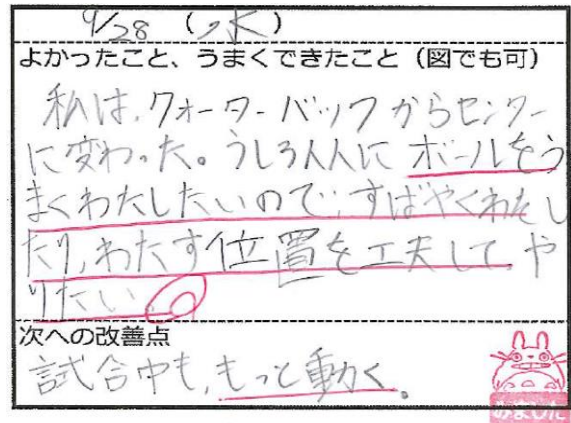 9/28 (水)
よかったこと、うまくできたこと（図でも可）
私は、クォーターバックからセンター
に変わった。うしろ人に ボールをう
まくわたしたいので、すばやくわたし
たり、わたす位置を工夫して、や
りたい。
次への改善点
試合中も、もっと動く。